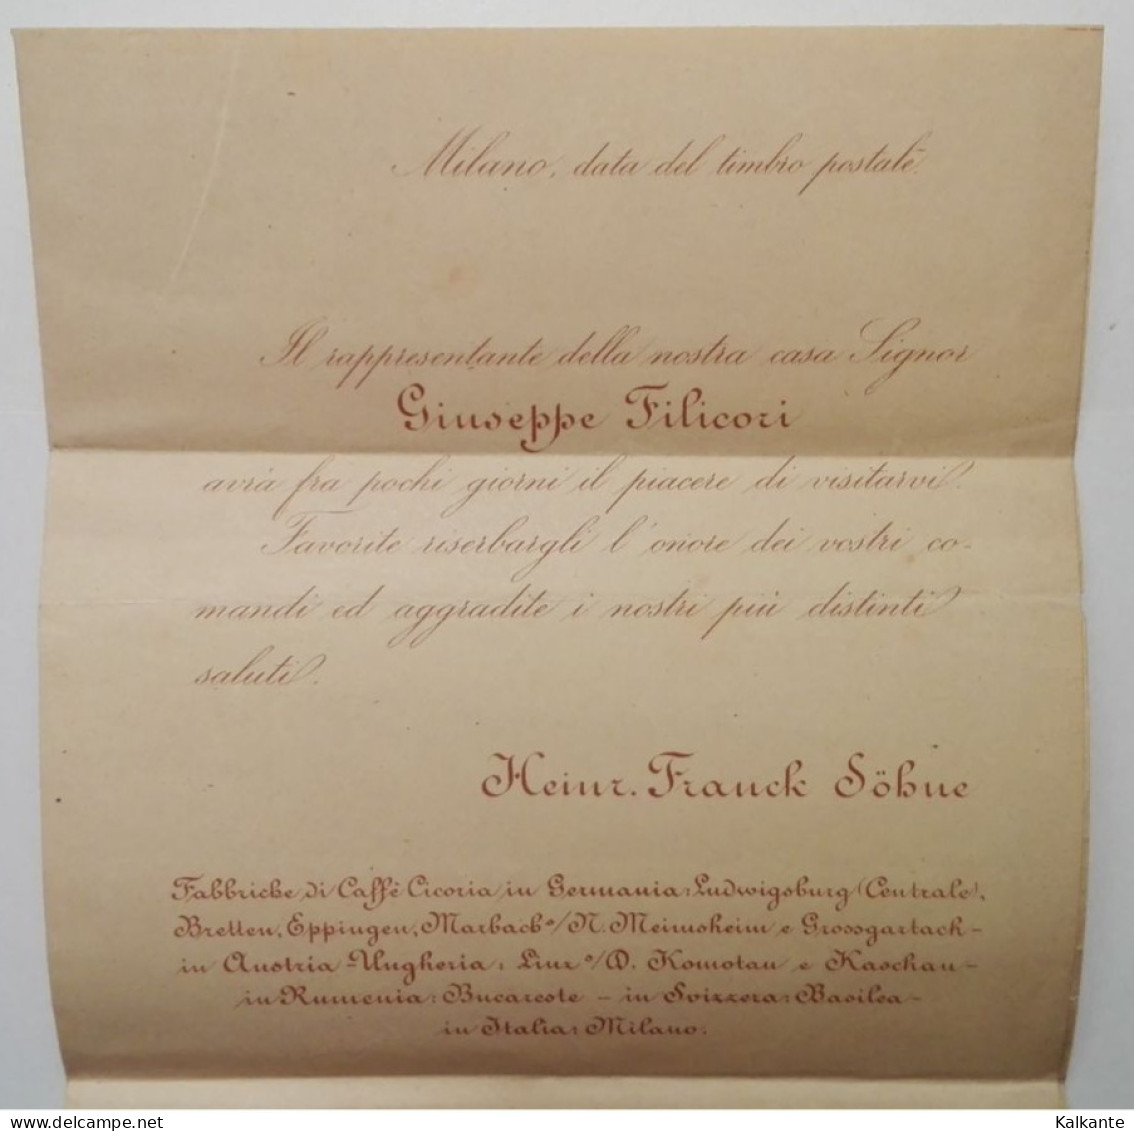 Milano, data del timbro postale.
Il rappresentante della nostra casa Signor
Giuseppe Filicori
avrà fra pochi giorni il piacere di visitarvi.
Favorite riserbargli l'onore dei vostri co-
mandi ed aggradite i nostri più distinti
saluti.
Heinr. Franck Söhne
Fabbriche di Caffè Cicoria in Germania: Ludwigsburg (Centrale),
Bretten, Eppingen, Marbach a/N. Meimsheim e Grossgartach-
in Austria-Ungheria: Linz a/D. Komotau e Kaschau-
in Rumenia: Bucareste - in Svizzera: Basilea-
in Italia: Milano.
delcampe.net
Kalkante